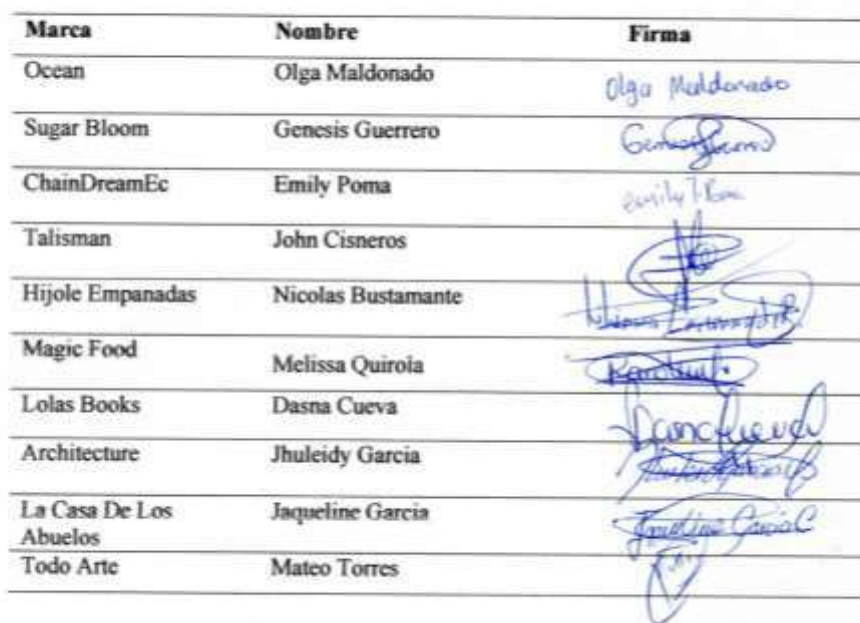 Marca Nombre Firma
Ocean Olga Maldonado Olga Maldonado
Sugar Bloom Genesis Guerrero
ChainDreamEc Emily Poma
Talisman John Cisneros
Hijole Empanadas Nicolas Bustamante
Magic Food Melissa Quirola
Lolas Books Dasna Cueva
Architecture Jhuleidy Garcia
La Casa De Los Jaqueline Garcia Jaqueline Garcia C
Abuelos
Todo Arte Mateo Torres